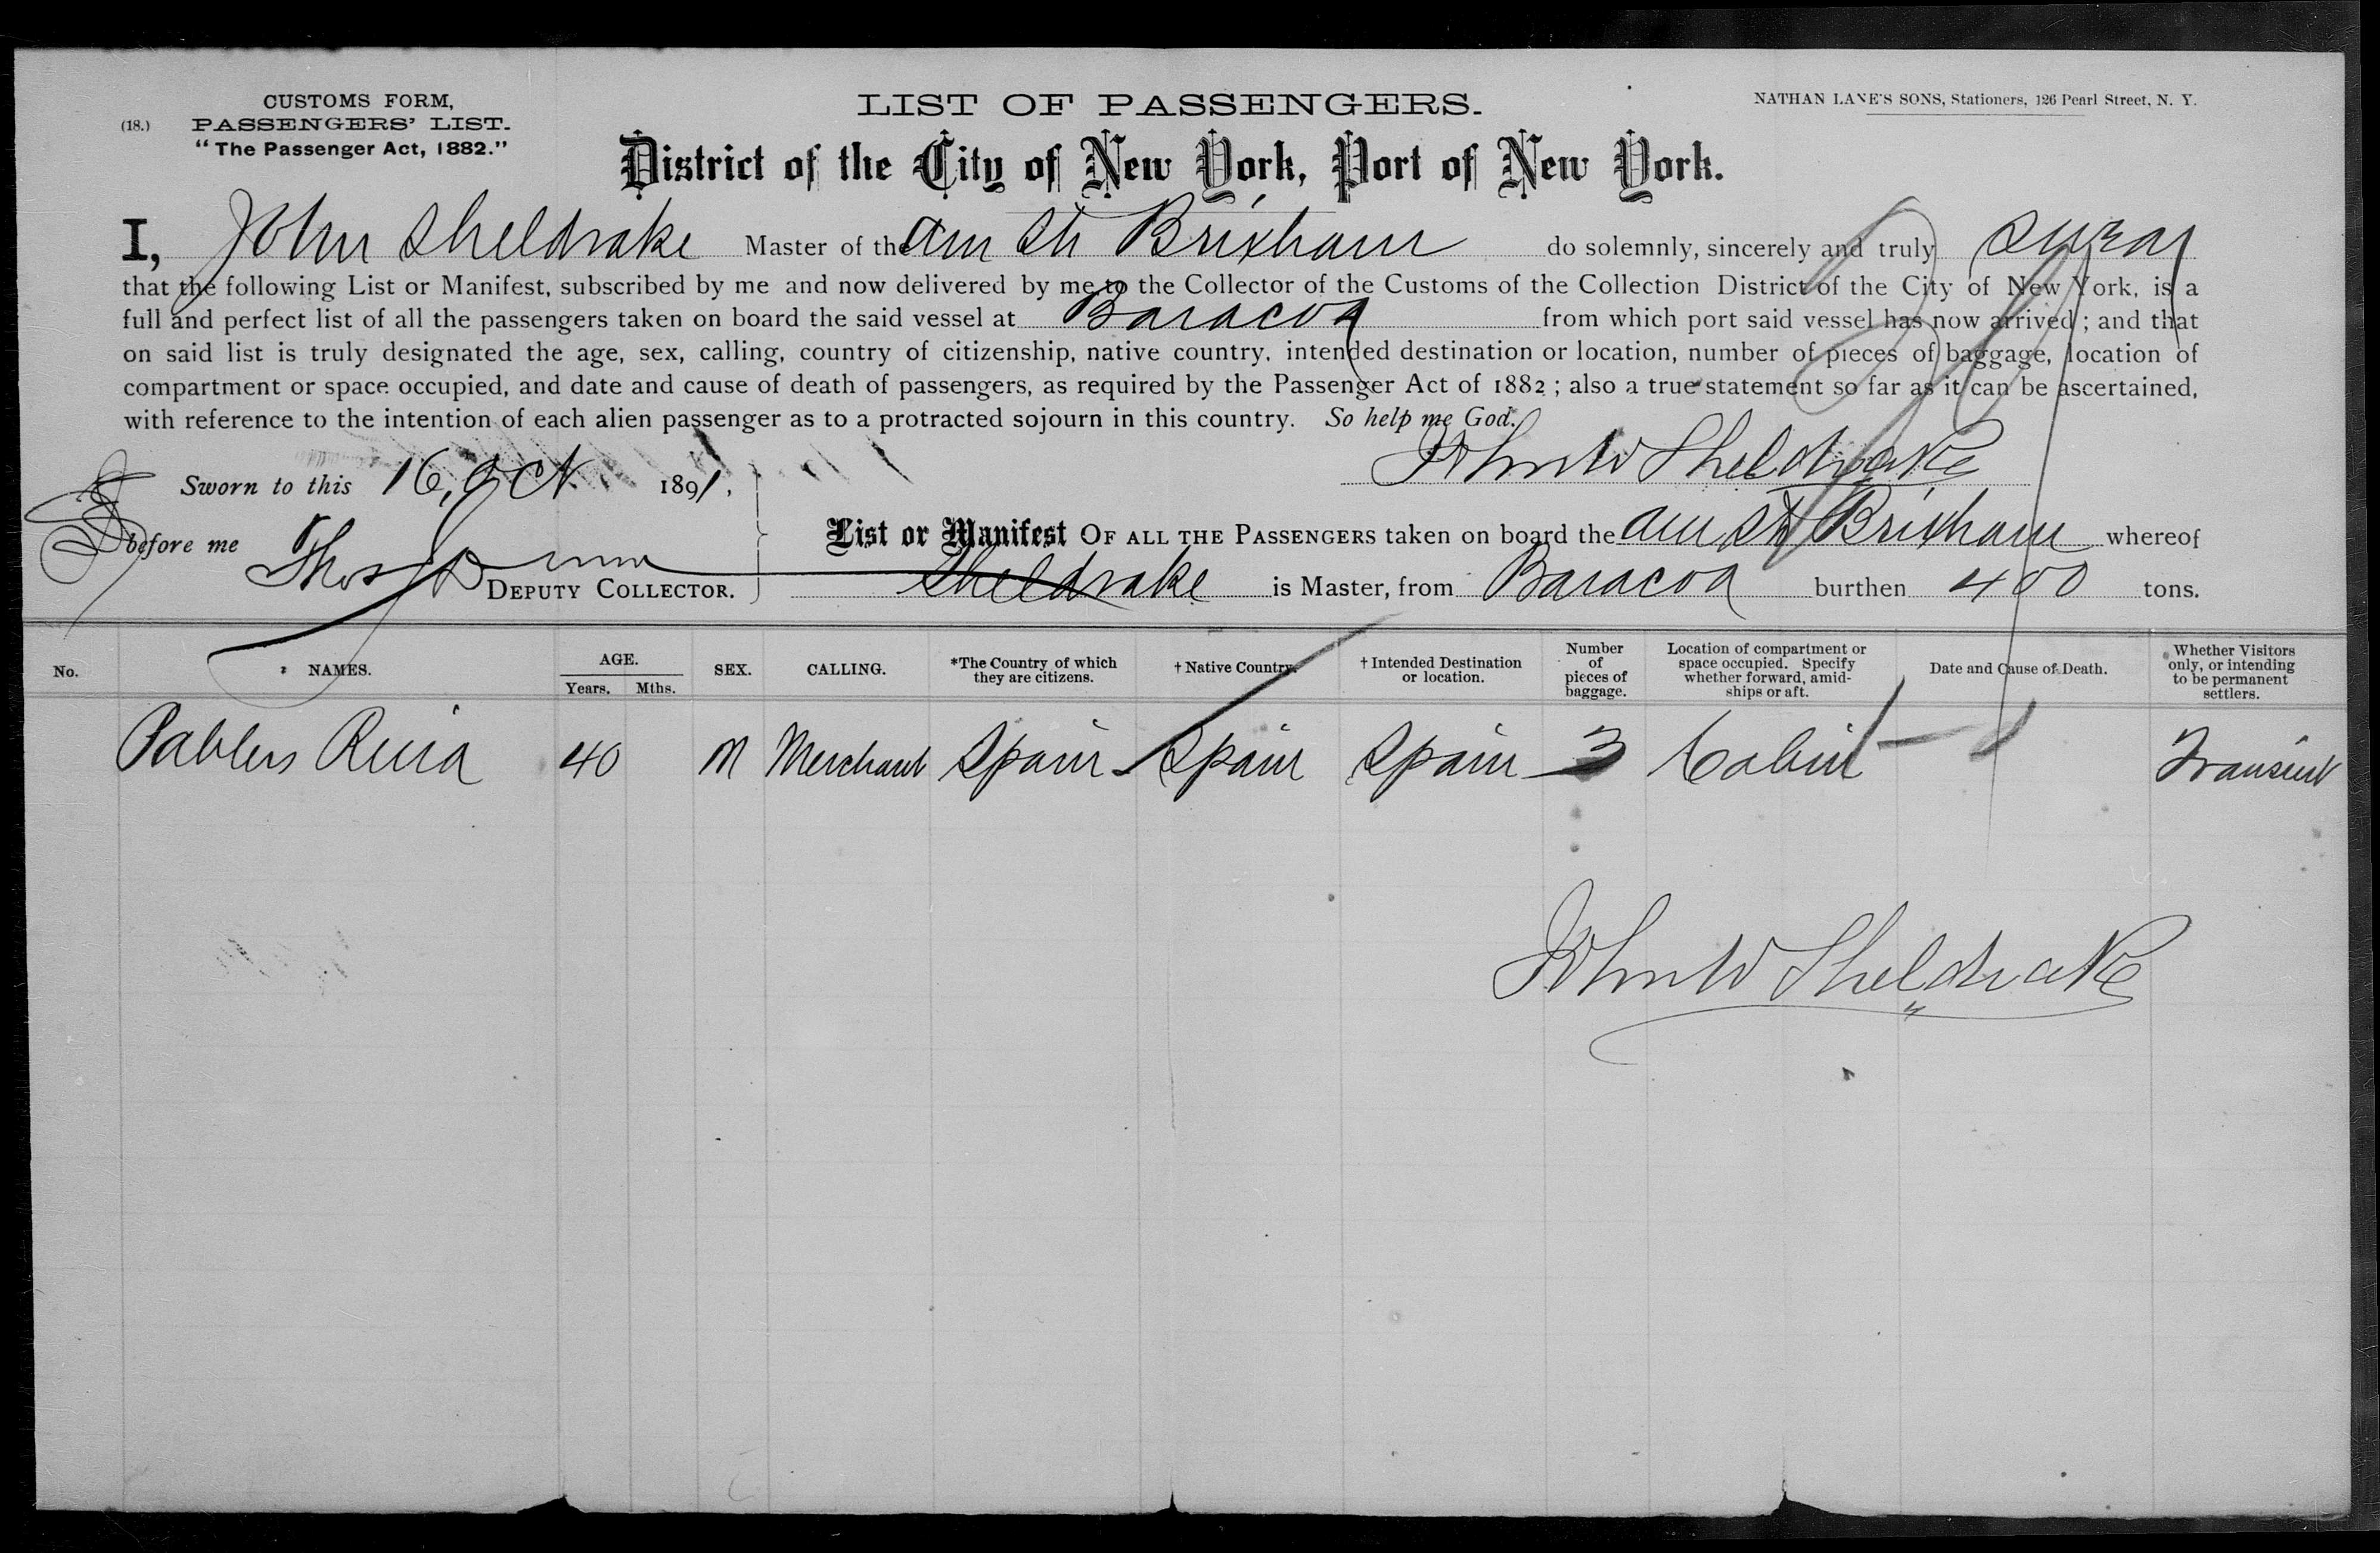 (18.) CUSTOMS FORM,
PASSENGERS' LIST.
"The Passenger Act, 1882."
LIST OF PASSENGERS.
NATHAN LANE'S SONS, Stationers, 126 Pearl Street, N. Y.
District of the City of New York, Port of New York.
I, John Sheldrake Master of the Am Str Brixham do solemnly, sincerely and truly swear
that the following List or Manifest, subscribed by me and now delivered by me to the Collector of the Customs of the Collection District of the City of New York, is a
full and perfect list of all the passengers taken on board the said vessel at Baracoa from which port said vessel has now arrived; and that
on said list is truly designated the age, sex, calling, country of citizenship, native country, intended destination or location, number of pieces of baggage, location of
compartment or space occupied, and date and cause of death of passengers, as required by the Passenger Act of 1882; also a true statement so far as it can be ascertained,
with reference to the intention of each alien passenger as to a protracted sojourn in this country. So help me God.
John W Sheldrake
Sworn to this 16, Oct 1891.
before me Thos
DEPUTY COLLECTOR.
List or Manifest OF ALL THE PASSENGERS taken on board the Am Str Brixham whereof
Sheldrake is Master, from Baracoa burthen 400 tons.
No. NAMES. AGE. Years. Mths. SEX. CALLING. *The Country of which they are citizens. † Native Country. † Intended Destination or location. Number of pieces of baggage. Location of compartment or space occupied. Specify whether forward, amidships or aft. Date and Cause of Death. Whether Visitors only, or intending to be permanent settlers.
40 M Merchant Spain Spain Spain 3 Cabin — Transient
John W Sheldrake